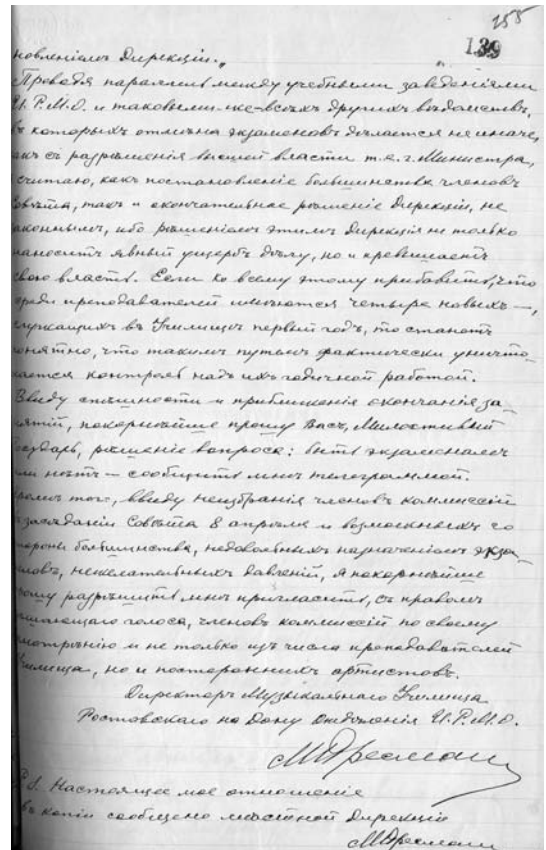 255
139
новленіемъ Дирекціи.„
Проводя параллель между учебными заведеніями
И. Р. М. О. и таковыми-же всѣхъ другихъ вѣдомствъ,
въ которыхъ отмѣна экзаменовъ дѣлается не иначе,
какъ съ разрѣшенія высшей власти т. е. г. Министра,
считаю, какъ постановленіе большинства членовъ
Совѣта, такъ и окончательное рѣшеніе Дирекціи, не
законнымъ, ибо рѣшеніемъ этимъ Дирекція не только
наноситъ явный ущербъ дѣлу, но и превышаетъ
свою власть. Если ко всему этому прибавить, что
среди преподавателей имѣются четыре новыхъ —,
служащихъ въ Училищѣ первый годъ, то станетъ
понятно, что такимъ путемъ фактически уничто-
жается контроль надъ ихъ годичной работой.
Ввиду спѣшности и приближенія окончанія за-
нятій, покорнѣйше прошу Васъ, Милостивый
Государь, рѣшеніе вопроса: быть экзаменамъ
или нѣтъ — сообщить мнѣ телеграммой.
Кромѣ того, ввиду неизбранія членовъ коммиссій
въ засѣданіи Совѣта 8 апрѣля и возможныхъ со
стороны большинства, недовольныхъ назначеніемъ экза-
меновъ, нежелательныхъ давленій, я покорнѣйше
прошу разрѣшить мнѣ пригласить, съ правомъ
рѣшающаго голоса, членовъ коммиссій по своему
усмотрѣнію и не только изъ числа преподавателей
Училища, но и постороннихъ артистовъ.
Директоръ Музыкальнаго Училища
Ростовскаго на Дону Отдѣленія И. Р. М. О.
МПресманъ
P. S. Настоящее мое отношеніе
въ копіи сообщено мѣстной Дирекціи
МПресманъ